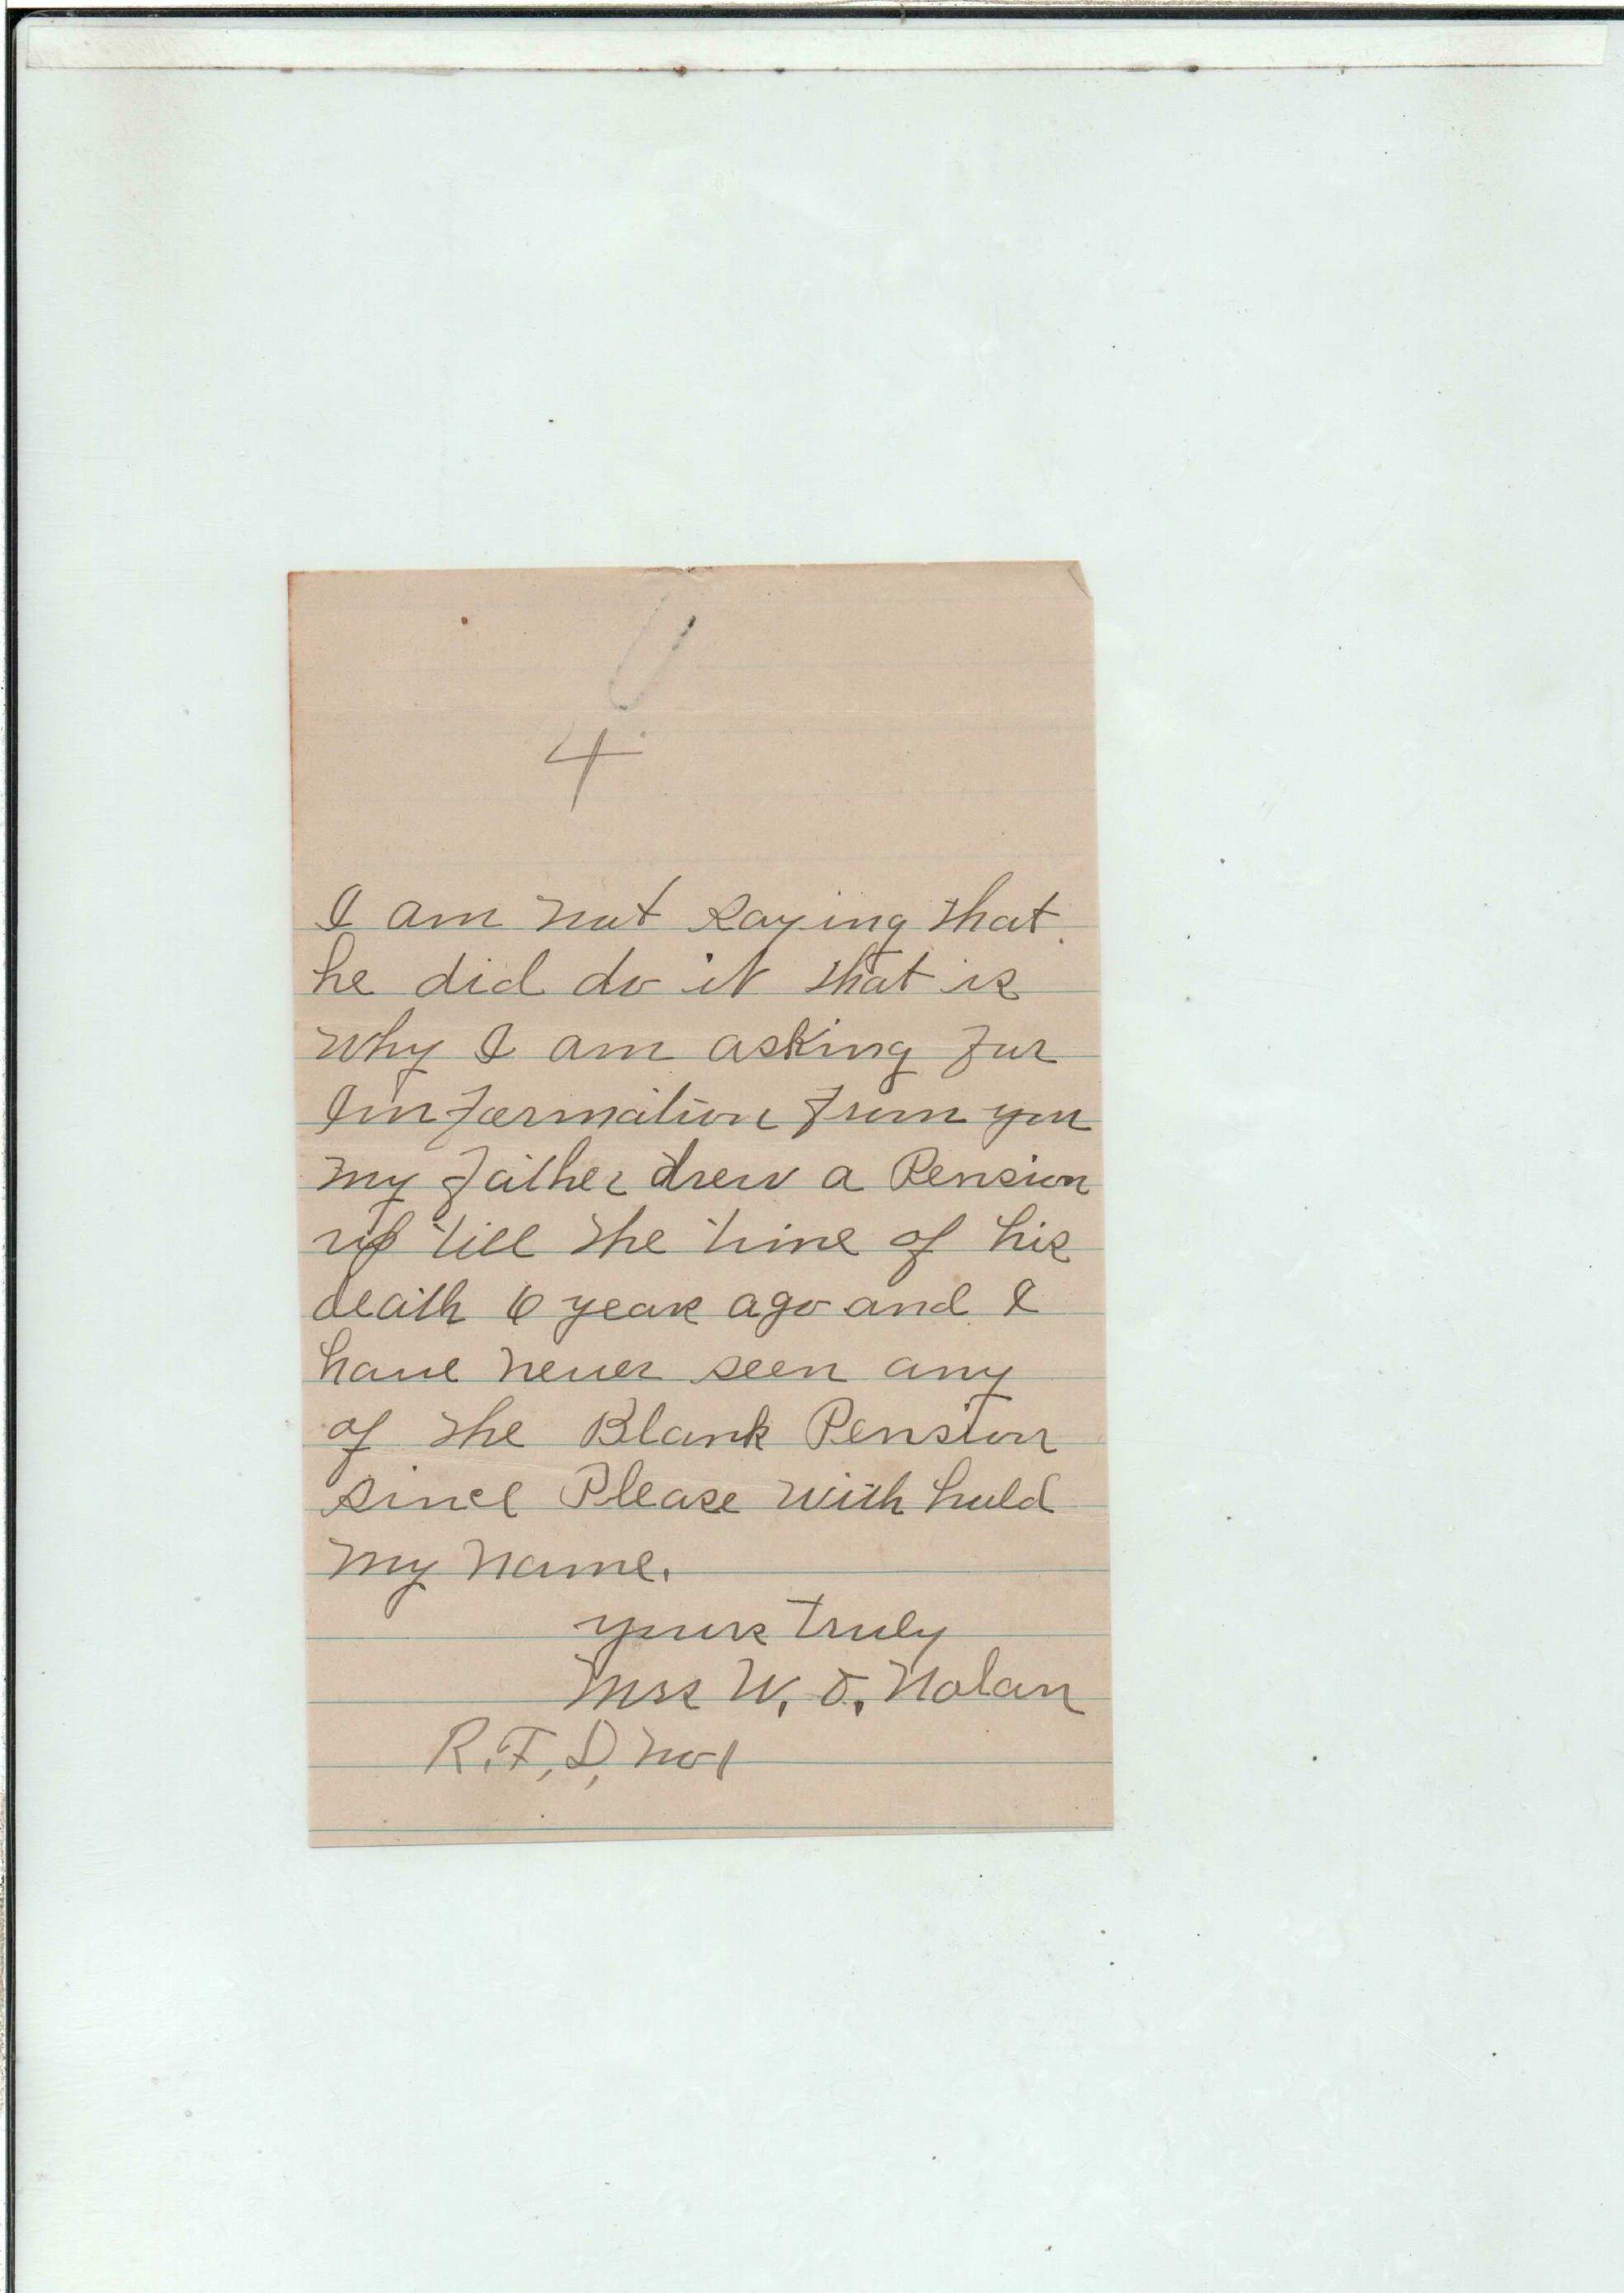 4
I am not saying that
he did do it that is
why I am asking for
Information from you
my father drew a Pension
up till the time of his
death 6 years ago and I
have never seen any
of the Blank Pension
since Please with hold
my name.
yours truly
Mrs W. O. Nolan
R.F.D, No 1